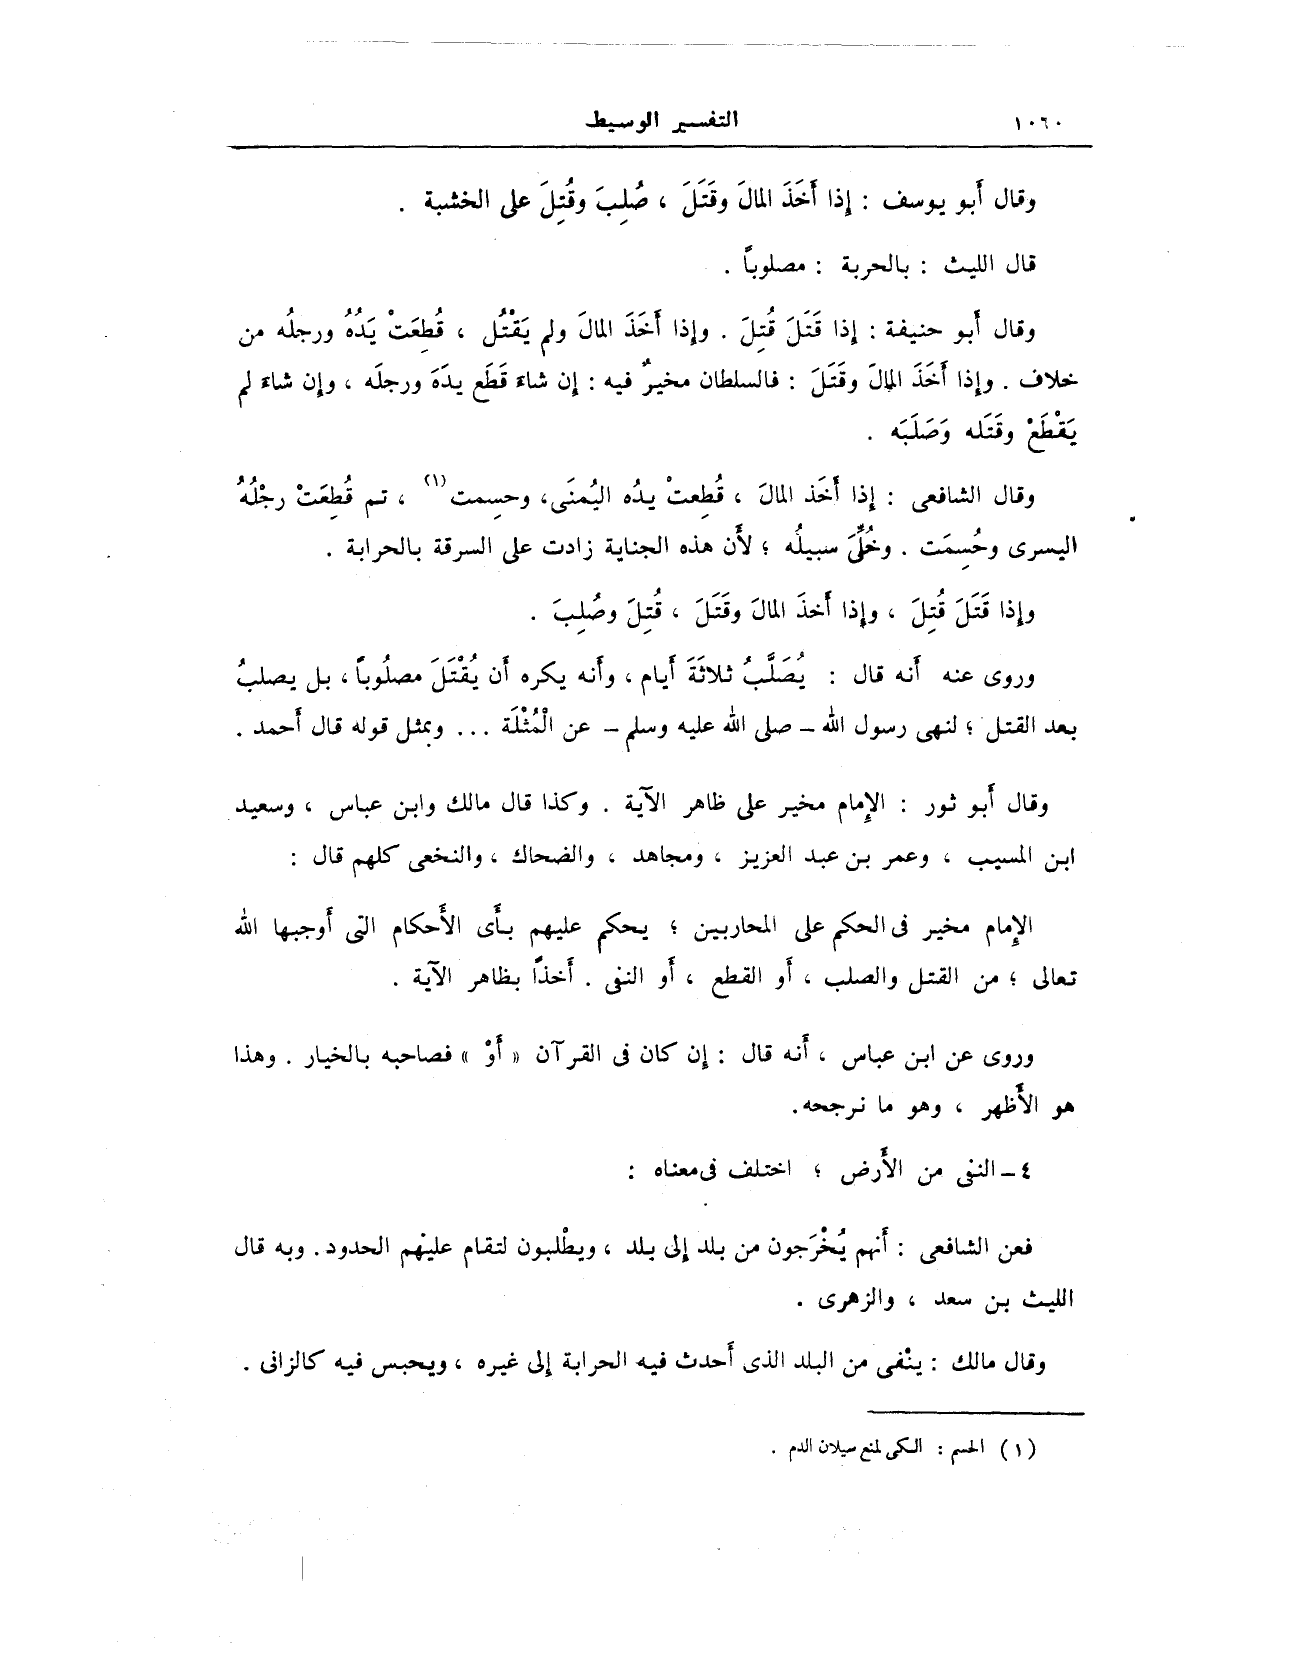 ١٠٦٠ التفسير الوسيط
وقال أبو يوسف : إذا أَخَذَ المالَ وقَتَلَ ، صُلِبَ وقُتِلَ على الخشبة .
قال الليث : بالحربة : مصلوباً .
وقال أبو حنيفة : إذا قَتَلَ قُتِلَ . وإذا أَخَذَ المالَ ولم يَقْتُل ، قُطِعَتْ يَدُهُ ورجلُه من
خلاف . وإذا أَخَذَ المالَ وقَتَلَ : فالسلطان مخيرٌ فيه : إن شاءَ قَطَع يدَه ورجلَه ، وإن شاءَ لم
يَقْطَعْ وقَتَله وَصَلَبَه .
وقال الشافعى : إذا أَخَذ المالَ ، قُطِعتْ يدُه اليُمنَى، وحسِمت(١) ، تم قُطِعَتْ رجْلُهُ
اليسرى وحُسِمَت . وخُلِّىَ سبيلُه ؛ لأَن هذه الجناية زادت على السرقة بالحرابة .
وإذا قَتَلَ قُتِلَ ، وإذا أَخذَ المالَ وقَتَلَ ، قُتِلَ وصُلِبَ .
وروى عنه أَنه قال : يُصَلَّبُ ثلاثَةَ أَيام ، وأَنه يكره أَن يُقْتَلَ مصلُوباً ، بل يصلبُ
بعد القتل ؛ لنهى رسول الله – صلى الله عليه وسلم – عن الْمُثْلَة ... وبمثل قوله قال أَحمد .
وقال أَبو ثور : الإمام مخير على ظاهر الآية . وكذا قال مالك وابن عباس ، وسعيد
ابن المسيب ، وعمر بن عبد العزيز ، ومجاهد ، والضحاك ، والنخعى كلهم قال :
الإمام مخير فى الحكم على المحاربين ؛ يحكم عليهم بأَى الأَحكام التى أَوجبها الله
تعالى ؛ من القتل والصلب ، أَو القطع ، أَو النفى . أَخذاً بظاهر الآية .
وروى عن ابن عباس ، أَنه قال : إن كان فى القرآن « أَوْ » فصاحبه بالخيار . وهذا
هو الأَظهر ، وهو ما نرجحه.
٤ – النفى من الأَرض ؛ اختلف فى معناه :
فعن الشافعى : أَنهم يُخْرَجون من بلد إلى بلد ، ويطْلبون لتقام عليْهم الحدود . وبه قال
الليث بن سعد ، والزهرى .
وقال مالك : ينْفى من البلد الذى أَحدث فيه الحرابة إلى غيره ، ويحبس فيه كالزانى .
(١) الحسم : الكى لمنع سيلان الدم .